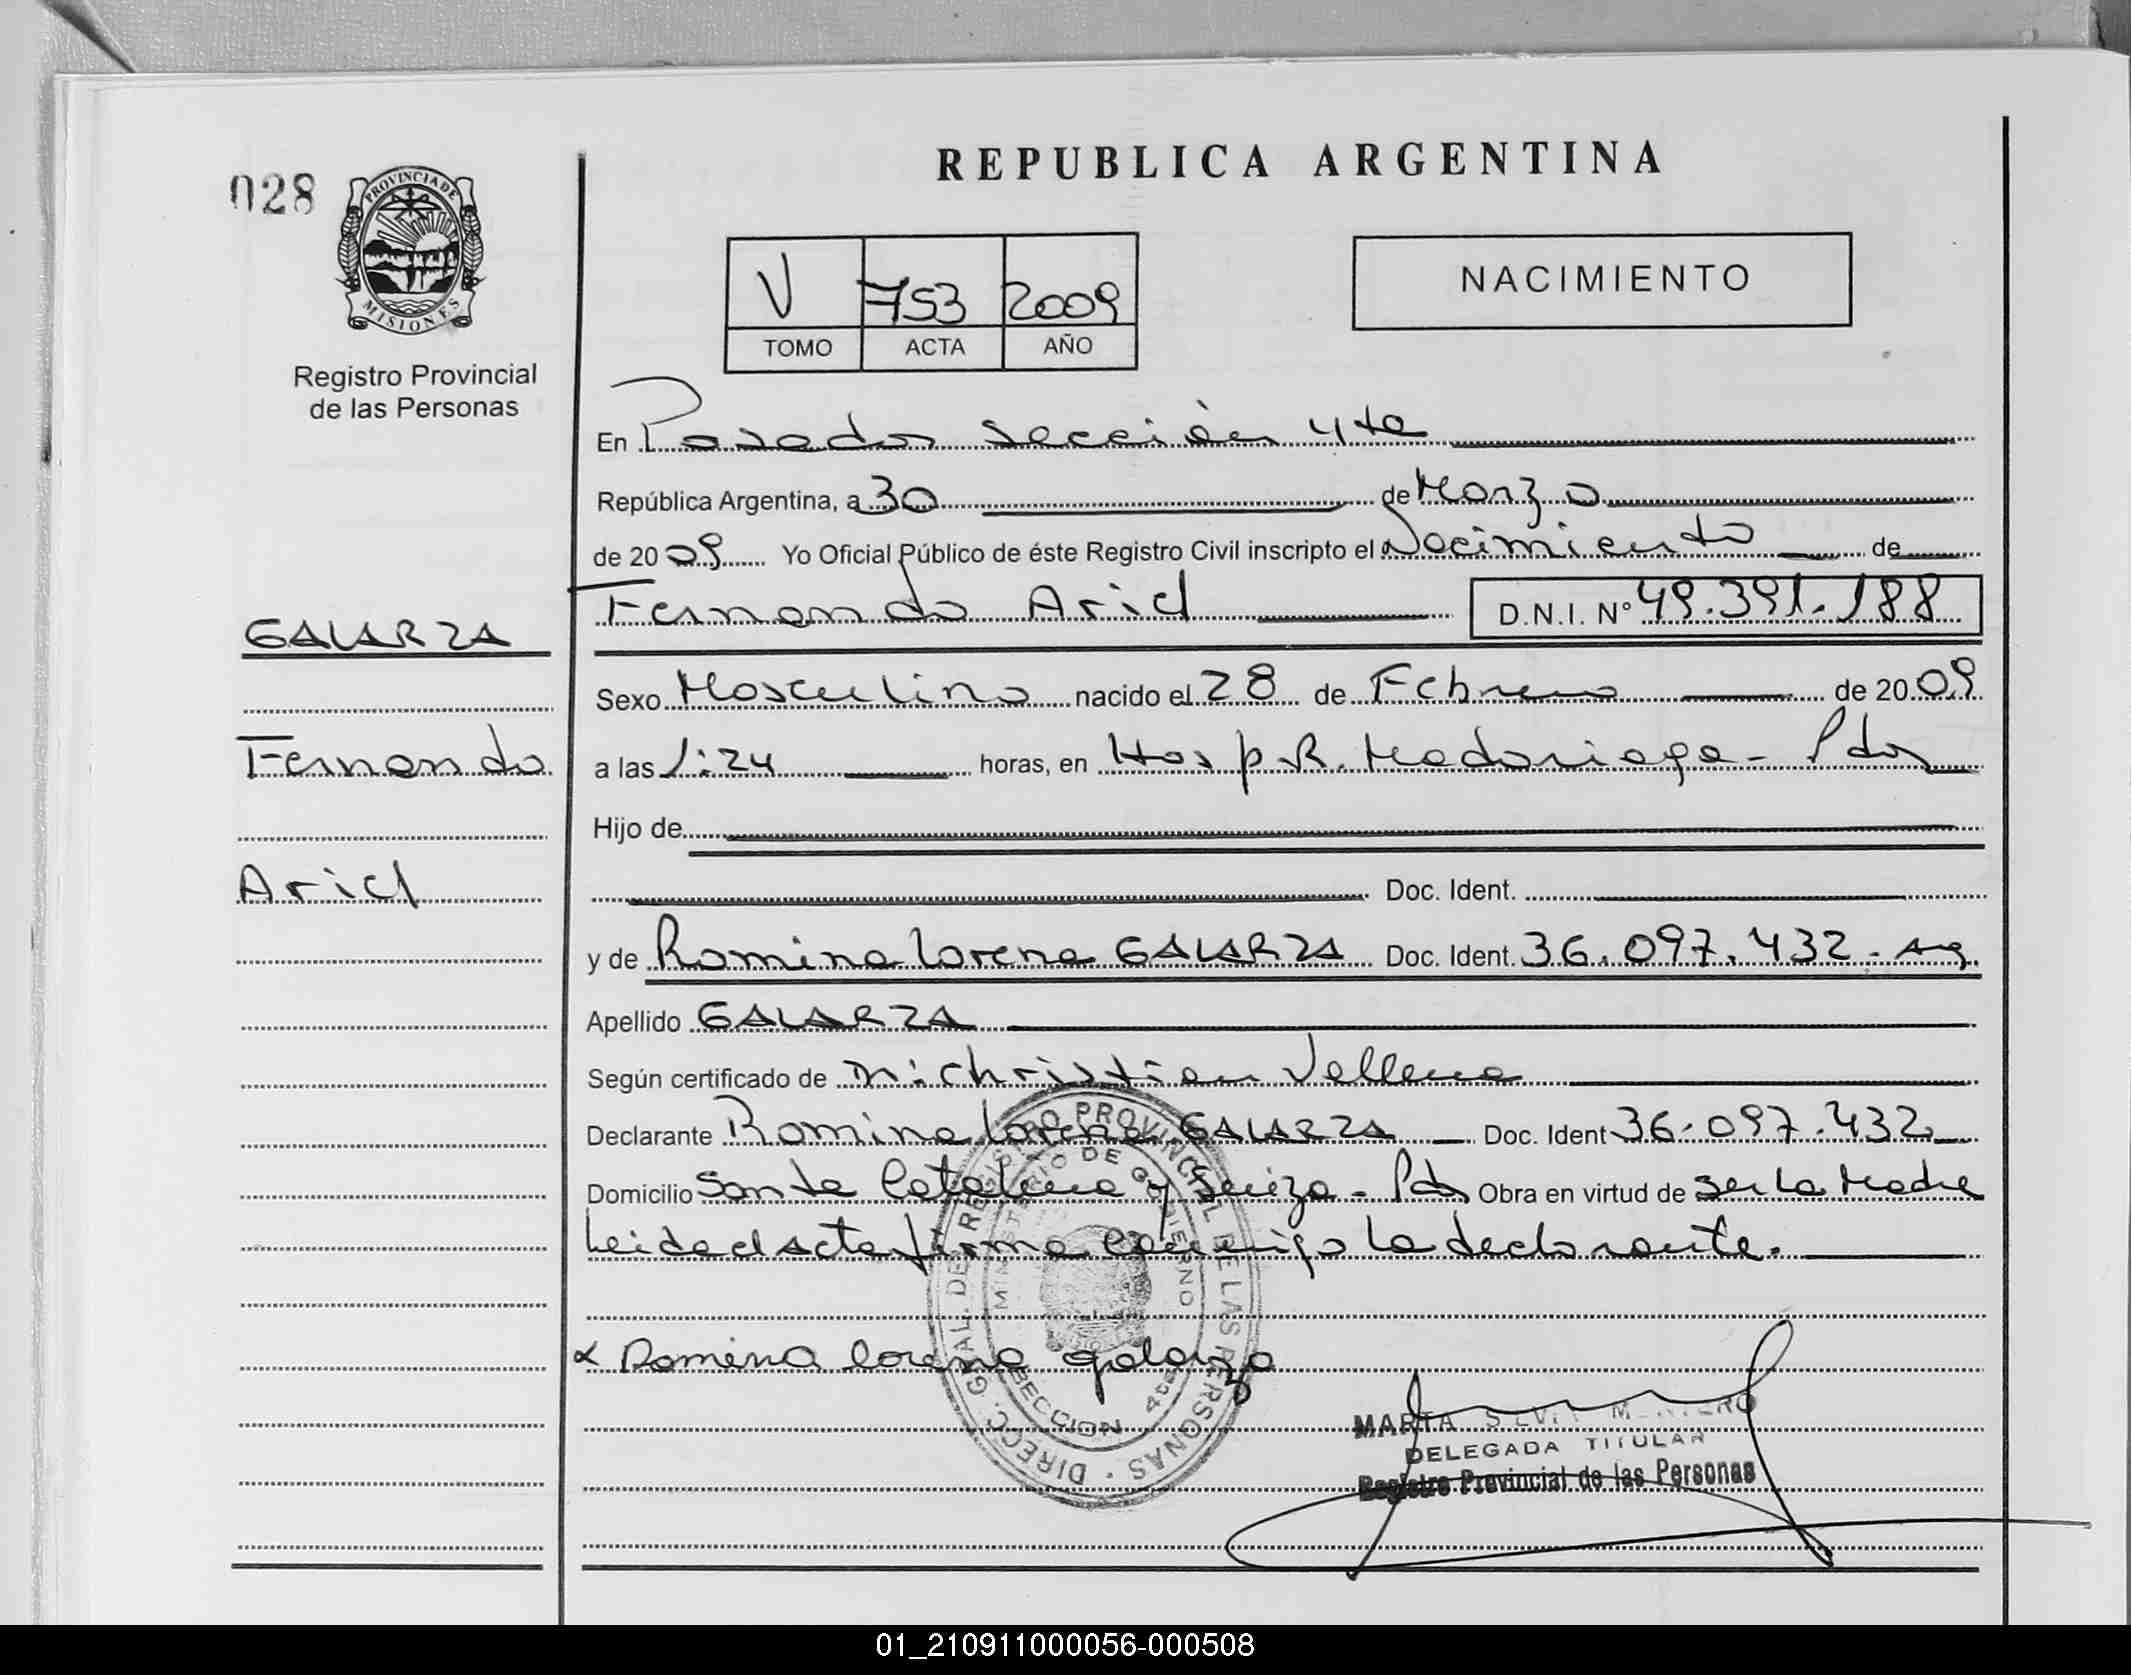 REPUBLICA ARGENTINA
028
PROVINCIA DE
MISIONES
Registro Provincial
de las Personas
V 753 2009
TOMO ACTA AÑO
NACIMIENTO
En Posadas Sección 4ta
República Argentina, a 30 de Marzo
de 2009 Yo Oficial Público de éste Registro Civil inscripto el Nacimiento de
Fernando Ariel D.N.I. Nº 49.391.188
GALARZA
Fernando
Ariel
Sexo Masculino nacido el 28 de Febrero de 2009
a las 1:24 horas, en Hosp. R. Madariaga - Pdas
Hijo de
Doc. Ident.
y de Romina Lorena GALARZA Doc. Ident. 36.097.432 - Arg.
Apellido GALARZA
Según certificado de Christian
Declarante Romina Lorena GALARZA Doc. Ident 36.097.432
Domicilio Santa Catalina y Suiza - Pdas Obra en virtud de ser la Madre
Leida el Acta firma conmigo la declarante.
Romina lorena galarza
DIRECC. GRAL. DE REGISTRO PROVINCIAL DE LAS PERSONAS
MINISTERIO DE GOBIERNO
SECCION 4ta
MARTA SILVIA
DELEGADA TITULAR
Registro Provincial de las Personas
01_210911000056-000508